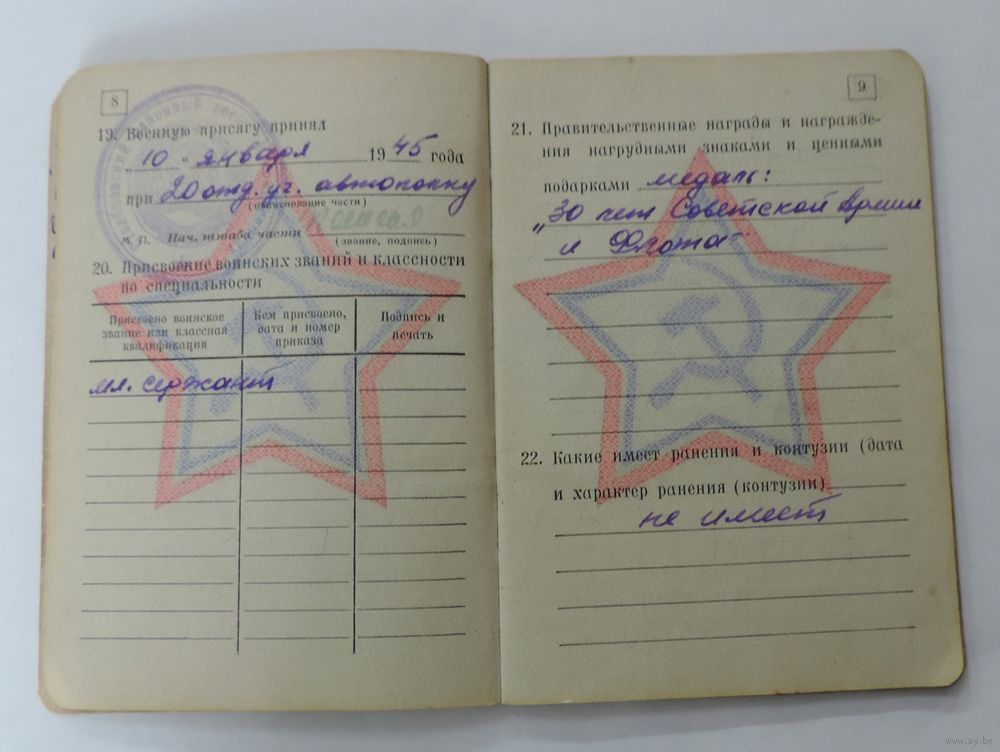 8
19. Военную присягу принял
„ 10 “ января 1945 года
при 20 отд. уч. автополку
(наименование части)
М. П. Нач. штаба части
(звание, подпись)
20. Присвоение воинских званий и классности
по специальности
Присвоено воинское звание или классная квалификация
Кем присвоено, дата и номер приказа
Подпись и печать
мл. сержант
9
21. Правительственные награды и награжде-
ния нагрудными знаками и ценными
подарками медаль:
„30 лет Советской Армии
и Флота“
22. Какие имеет ранения и контузии (дата
и характер ранения (контузии)
не имеет
www.ay.by